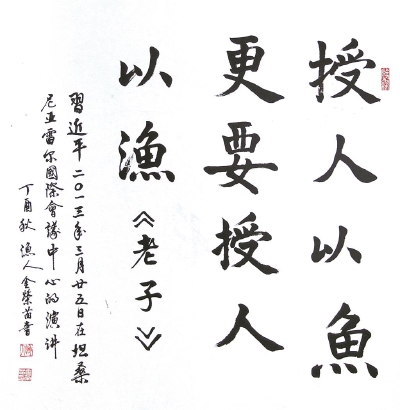 授人以魚
更要授人
以漁《老子》
習近平二〇一三年三月廿五日在坦桑
尼亚雷尔國際會議中心的演讲
丁酉秋 漁人金榮苗書